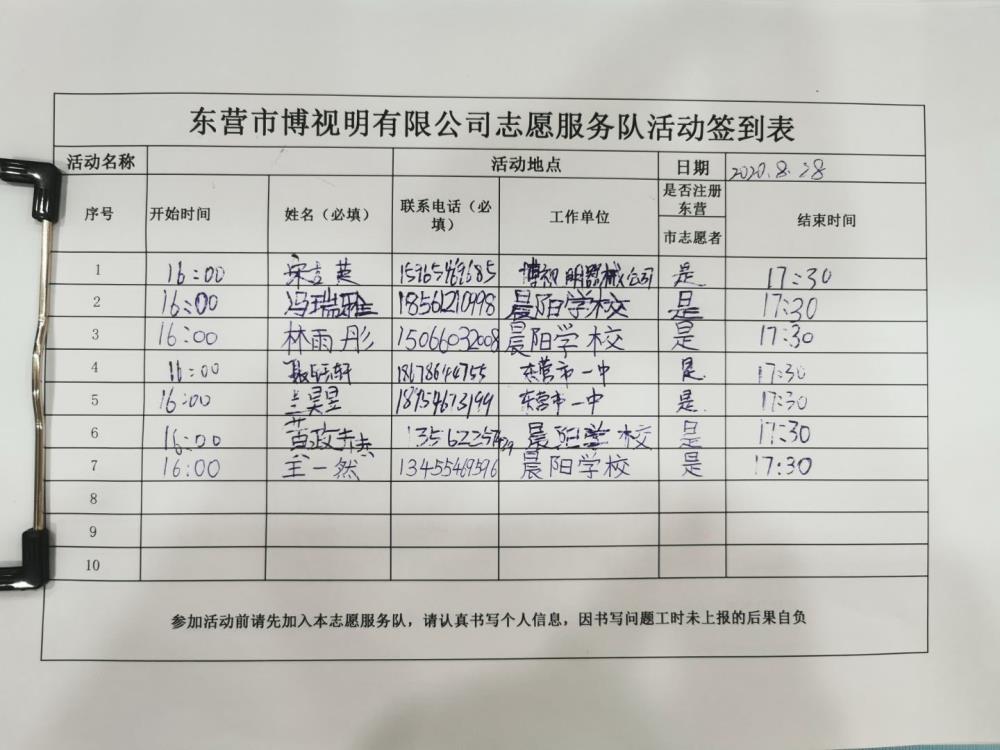 东营市博视明有限公司志愿服务队活动签到表
活动名称 活动地点 日期 2020.8.28
序号 开始时间 姓名（必填） 联系电话（必填） 工作单位 是否注册东营市志愿者 结束时间
1 16:00 是 17:30
2 16:00 冯瑞雅 18561210998 晨阳学校 是 17:30
3 16:00 林雨彤 15066032008 晨阳学校 是 17:30
4 16:00 18678644755 东营市一中 是 17:30
5 16:00 兰昊昱 18954673199 东营市一中 是 17:30
6 16:00 晨阳学校 是 17:30
7 16:00 王一然 13455469596 晨阳学校 是 17:30
8
9
10
参加活动前请先加入本志愿服务队，请认真书写个人信息，因书写问题工时未上报的后果自负